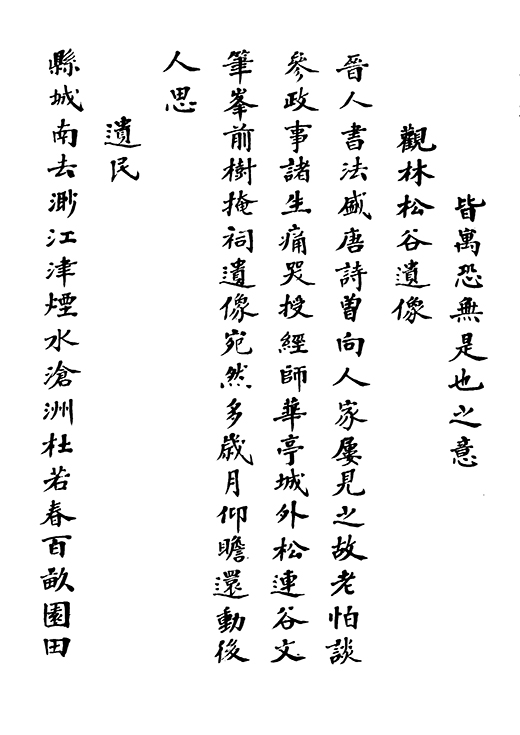 皆寓恐無是也之意
觀林松谷遺像
晉人書法盛唐詩曽向人家屡見之故老怕談
參政事諸生痛哭授經師華亭城外松連谷文
筆峯前樹掩祠遺像宛然多歲月仰瞻還動後
人思
遺民
縣城南去渺江津煙水滄洲杜若春百畝園田